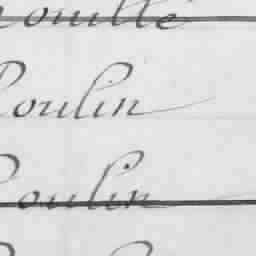 ouille
Poulin
Poulin